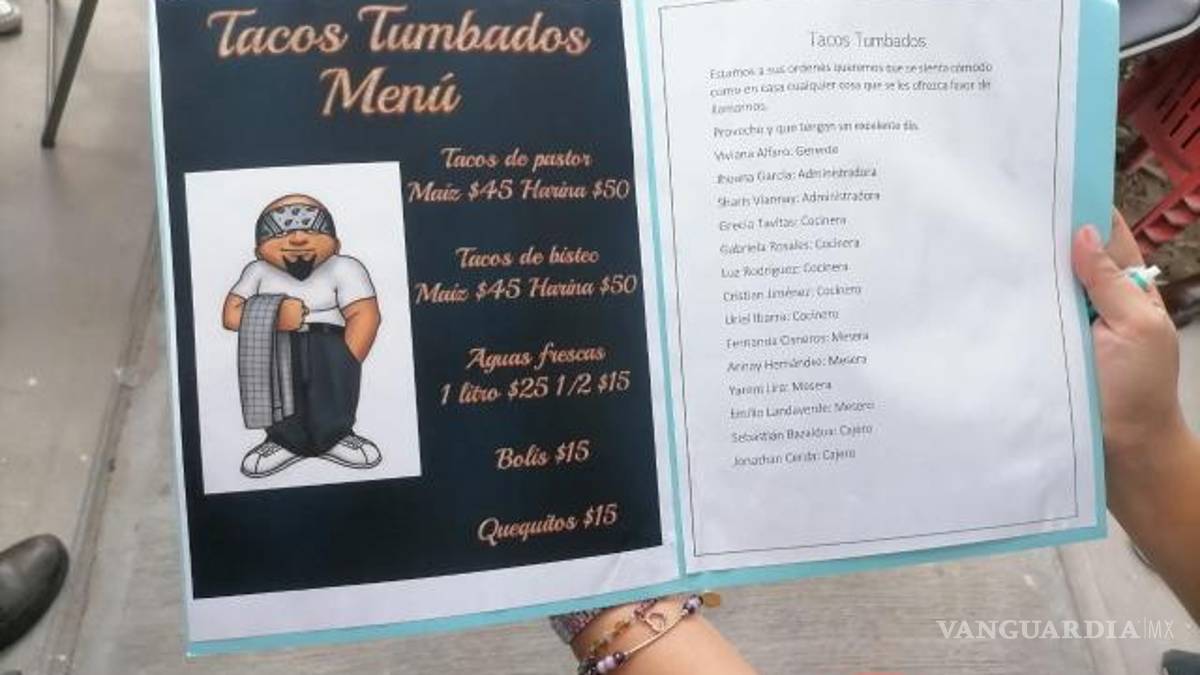 Tacos Tumbados
Menú
Tacos de pastor
Maíz $45 Harina $50
Tacos de bistec
Maíz $45 Harina $50
Aguas frescas
1 litro $25 1/2 $15
Bolis $15
Quequitos $15
Tacos Tumbados
Estamos a sus ordenes queremos que se sienta cómodo
como en casa cualquier cosa que se les ofrezca favor de
llamarnos.
Provecho y que tengan un excelente día.
Viviana Alfaro: Gerente
García: Administradora
Sharis Viannay: Administradora
Grecia Tavitas: Cocinera
Gabriela Rosales: Cocinera
Luz Rodríguez: Cocinera
Cristian Jiménez: Cocinero
Uriel Ibarra: Cocinero
Fernanda Cisneros: Mesera
Hernández: Mesera
Yaremi Lira: Mesera
Emilio Landaverde: Mesero
Sebastián Bazaldua: Cajero
Jonathan Cerda: Cajero
VANGUARDIA|MX